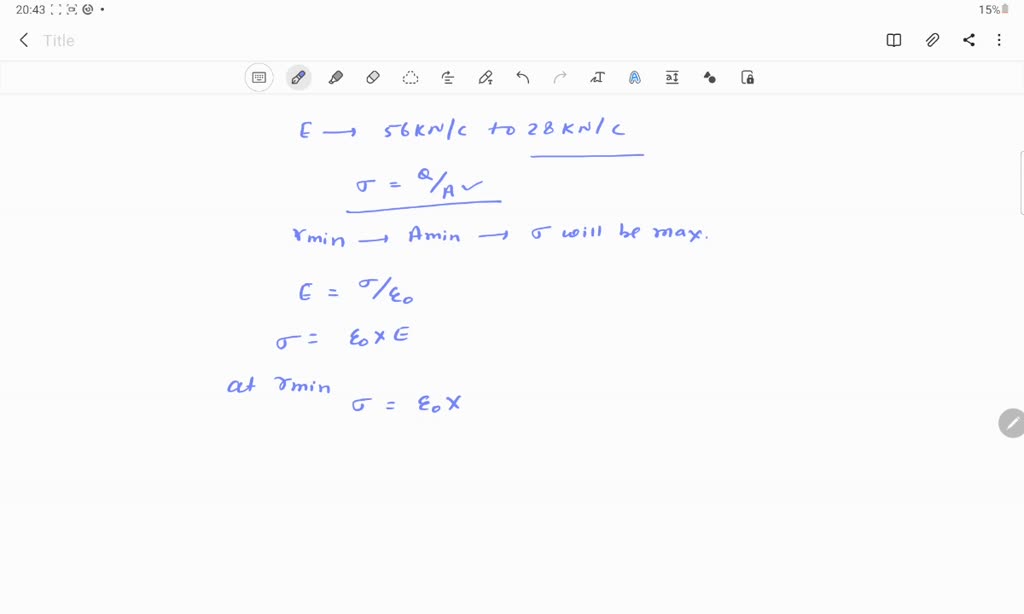 20:43
15%
Title
E → 56KN/C to 28KN/C
σ = Q/A ✓
rmin → Amin → σ will be max.
E = σ/ε₀
σ = ε₀ x E
at rmin
σ = ε₀ x